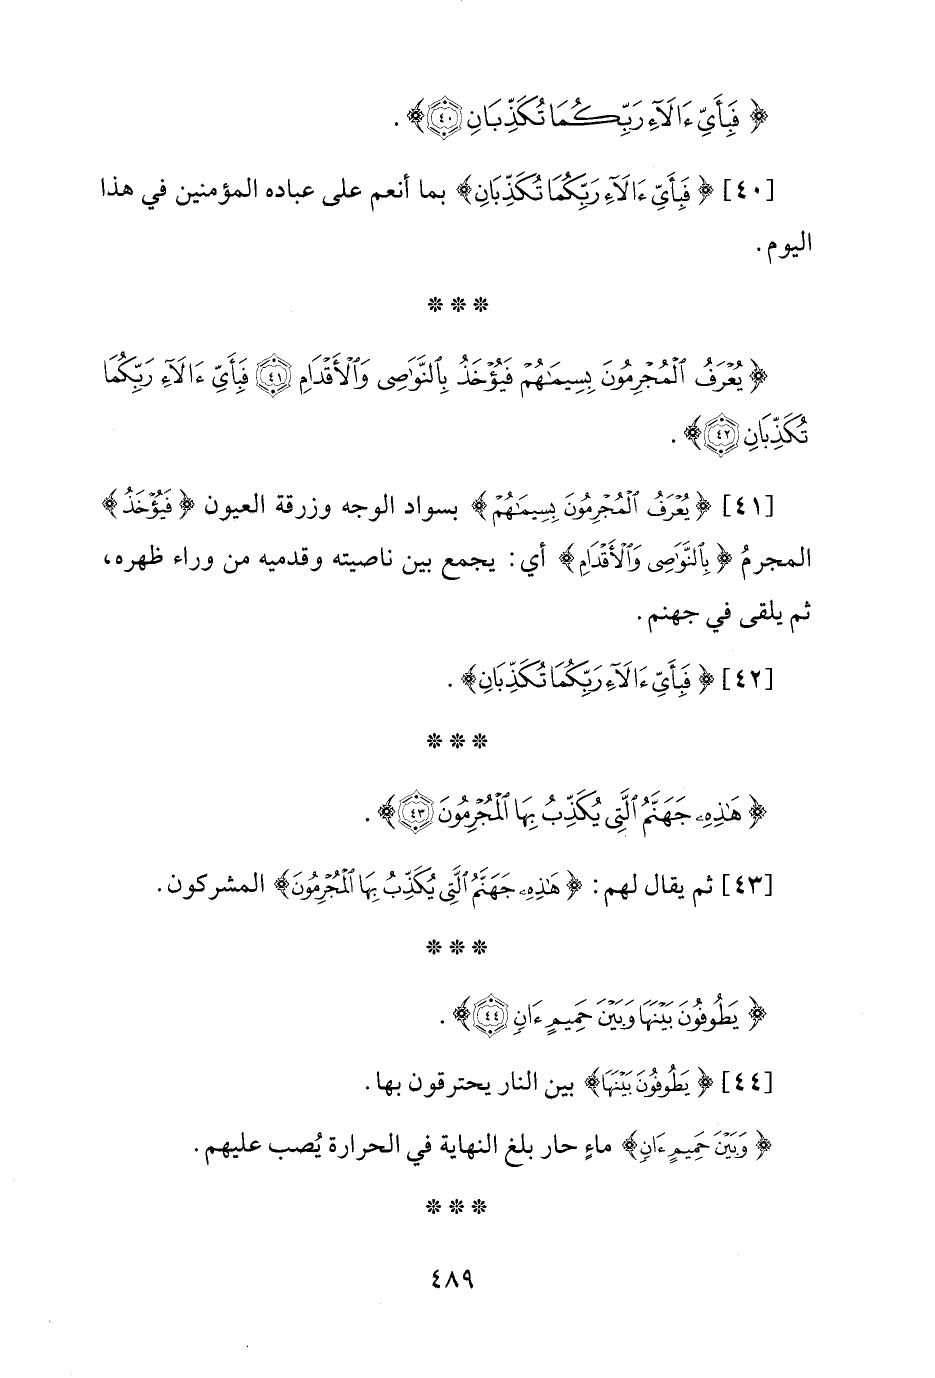 ﴿ فَبِأَيِّ ءَالَآءِ رَبِّكُمَا تُكَذِّبَانِ ٤٠ ﴾ .
[٤٠] ﴿ فَبِأَيِّ ءَالَآءِ رَبِّكُمَا تُكَذِّبَانِ ﴾ بما أنعم على عباده المؤمنين في هذا
اليوم .
* * *
﴿ يُعْرَفُ ٱلْمُجْرِمُونَ بِسِيمَـٰهُمْ فَيُؤْخَذُ بِٱلنَّوَٰصِى وَٱلْأَقْدَامِ ٤١ فَبِأَيِّ ءَالَآءِ رَبِّكُمَا
تُكَذِّبَانِ ٤٢ ﴾ .
[٤١] ﴿ يُعْرَفُ ٱلْمُجْرِمُونَ بِسِيمَـٰهُمْ ﴾ بسواد الوجه وزرقة العيون ﴿ فَيُؤْخَذُ ﴾
المجرمُ ﴿ بِٱلنَّوَٰصِى وَٱلْأَقْدَامِ ﴾ أي : يجمع بين ناصيته وقدميه من وراء ظهره،
ثم يلقى في جهنم .
[٤٢] ﴿ فَبِأَيِّ ءَالَآءِ رَبِّكُمَا تُكَذِّبَانِ ﴾ .
* * *
﴿ هَـٰذِهِۦ جَهَنَّمُ ٱلَّتِى يُكَذِّبُ بِهَا ٱلْمُجْرِمُونَ ٤٣ ﴾ .
[٤٣] ثم يقال لهم : ﴿ هَـٰذِهِۦ جَهَنَّمُ ٱلَّتِى يُكَذِّبُ بِهَا ٱلْمُجْرِمُونَ ﴾ المشركون .
* * *
﴿ يَطُوفُونَ بَيْنَهَا وَبَيْنَ حَمِيمٍ ءَانٍ ٤٤ ﴾ .
[٤٤] ﴿ يَطُوفُونَ بَيْنَهَا ﴾ بين النار يحترقون بها .
﴿ وَبَيْنَ حَمِيمٍ ءَانٍ ﴾ ماءٍ حار بلغ النهاية في الحرارة يُصب عليهم .
* * *
٤٨٩